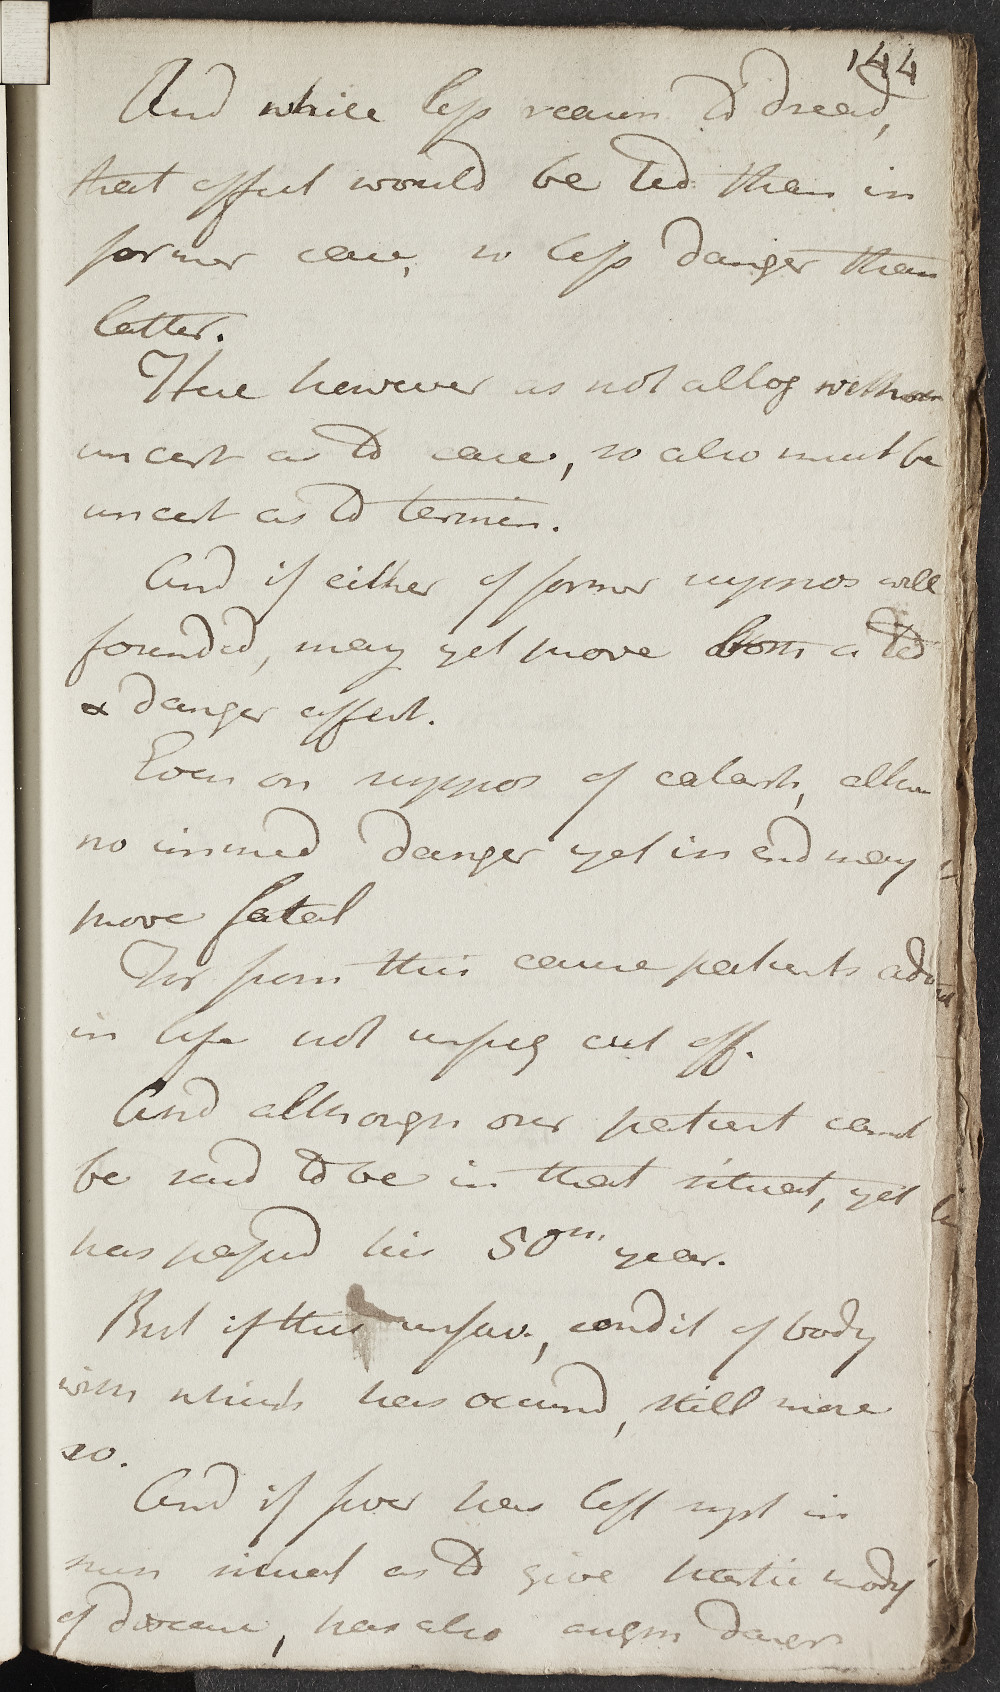 144
And while less reason to dread,
that affect would be ted than in
former case, so less danger than
latter.
Here however as not altog without
uncert as to case, so also must be
uncert as to termin.
And if either of former suppos well
founded, may yet prove both a ted
& danger affect.
Even on suppos of catarrh, altho
no immed danger yet in end may
prove fatal
For from this cause patients advd
in life not unfreq cut off.
And although our patient cannot
be said to be in that situat, yet he
has passed his 50th year.
But if this unfav., condit of body
with which has occurred, still more
so.
And if fever has left syst in
such situat as to give hectic mody
of disease, has also augm danger